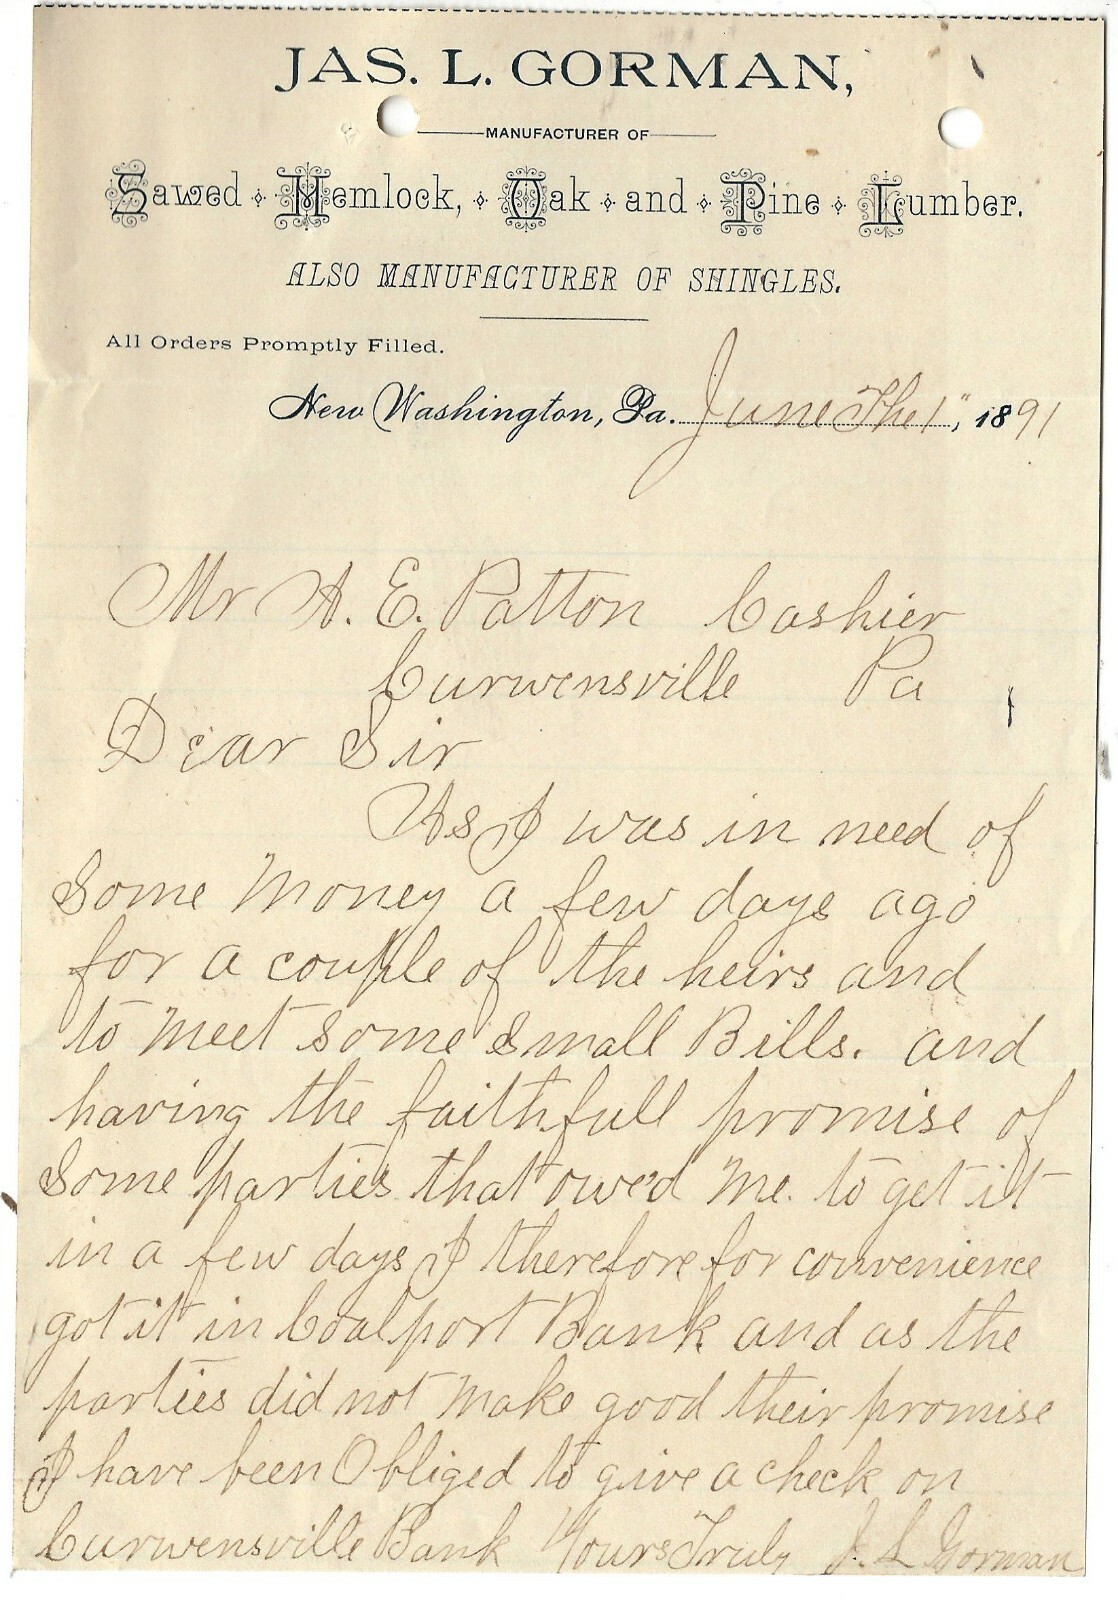 JAS. L. GORMAN,
MANUFACTURER OF
Sawed Hemlock, Oak and Pine Lumber.
ALSO MANUFACTURER OF SHINGLES.
All Orders Promptly Filled.
New Washington, Pa. June The 1", 1891
Mr A. E. Patton Cashier
Curwensville Pa
Dear Sir
As I was in need of
Some Money a few days ago
for a couple of the heirs and
to meet some small Bills. and
having the faithfull promise of
Some parties that owe'd Me. to get it
in a few days I therefore for convenience
got it in Coalport Bank and as the
parties did not make good their promise
I have been Obliged to give a check on
Curwensville Bank Yours Truly J. L Gorman